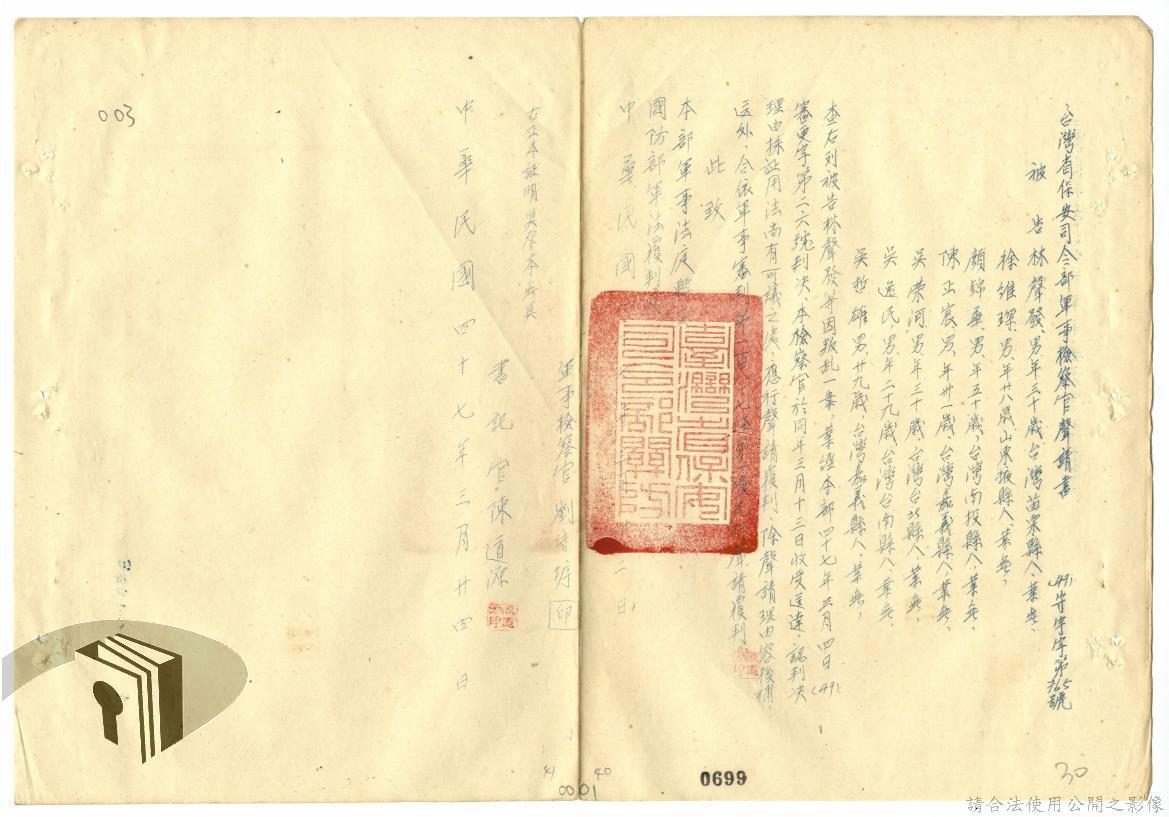 台灣省保安司令部軍事檢察官聲請書
(47)守字第765號
被告林聲發、男、年三十歲、台灣苗栗縣人、業無、
徐維琛、男、年廿八歲、山東掖縣人、業無、
顏錦華、男、年五十歲、台灣南投縣人、業無、
陳正宸、男、年卅一歲、台灣嘉義縣人、業無、
吳榮河、男、年三十歲、台灣台北縣人、業無、
吳逸民、男、年二十九歲、台灣台南縣人、業無、
吳哲雄、男、廿九歲、台灣嘉義縣人、業無、
查右列被告林聲發等因叛乱一案、業經本部四十七年三月四日(47)
審更字第二六號判决、本檢察官於同年三月十三日收受送達、認判决
理由採証用法尚有可議之處、應行聲請覆判、除聲請理由容後補
送外、合依軍事審判法第一百八十七條第一項聲請覆判。
此致
本部軍事法庭
國防部軍法覆判
中華民國二日
軍事檢察官劉
印
右正本證明與原本無異
書記官陳道源
中華民國四十七年三月廿四日
臺灣省保安司令部關防
003
41
40
0001
0699
30
請合法使用公開之影像